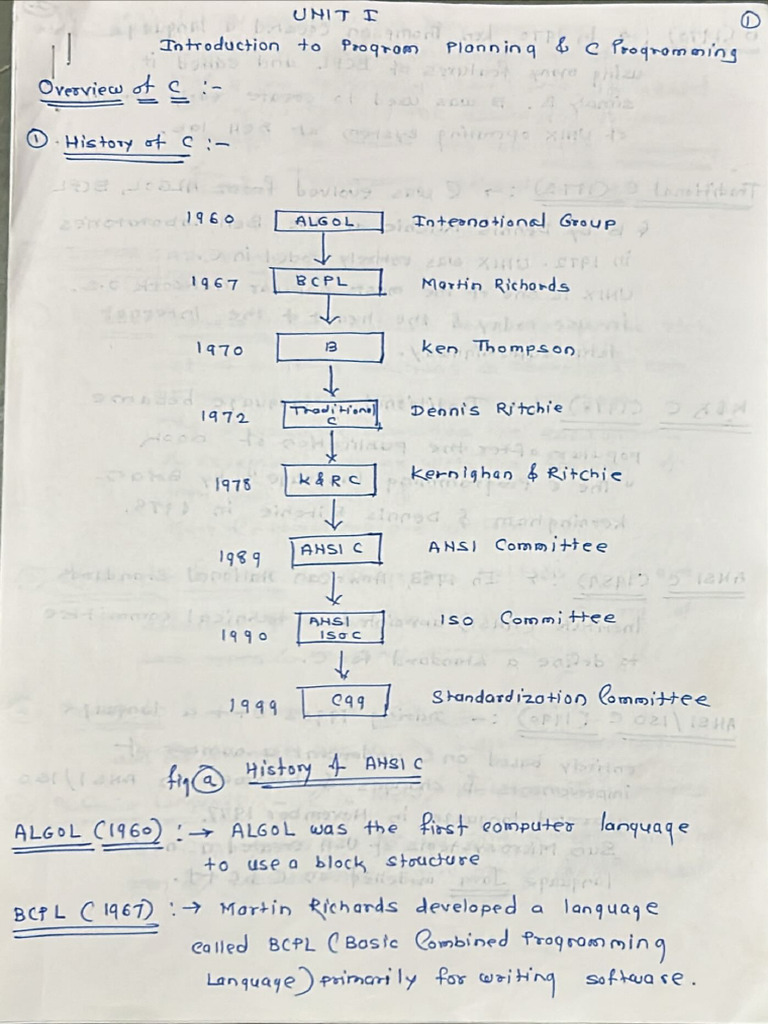 UNIT I
①
Introduction to Program Planning & C Programming
Overview of C :-
① History of C :-
1960 ALGOL International Group
1967 BCPL Martin Richards
1970 B Ken Thompson
1972 Traditional C Dennis Ritchie
1978 K & R C Kernighan & Ritchie
1989 ANSI C ANSI Committee
1990 ANSI ISO C ISO Committee
1999 C99 Standardization Committee
fig ⓐ History of ANSI C
ALGOL (1960) :→ ALGOL was the first computer language
to use a block structure
BCPL (1967) :→ Martin Richards developed a language
called BCPL (Basic Combined Programming
Language) primarily for writing software.